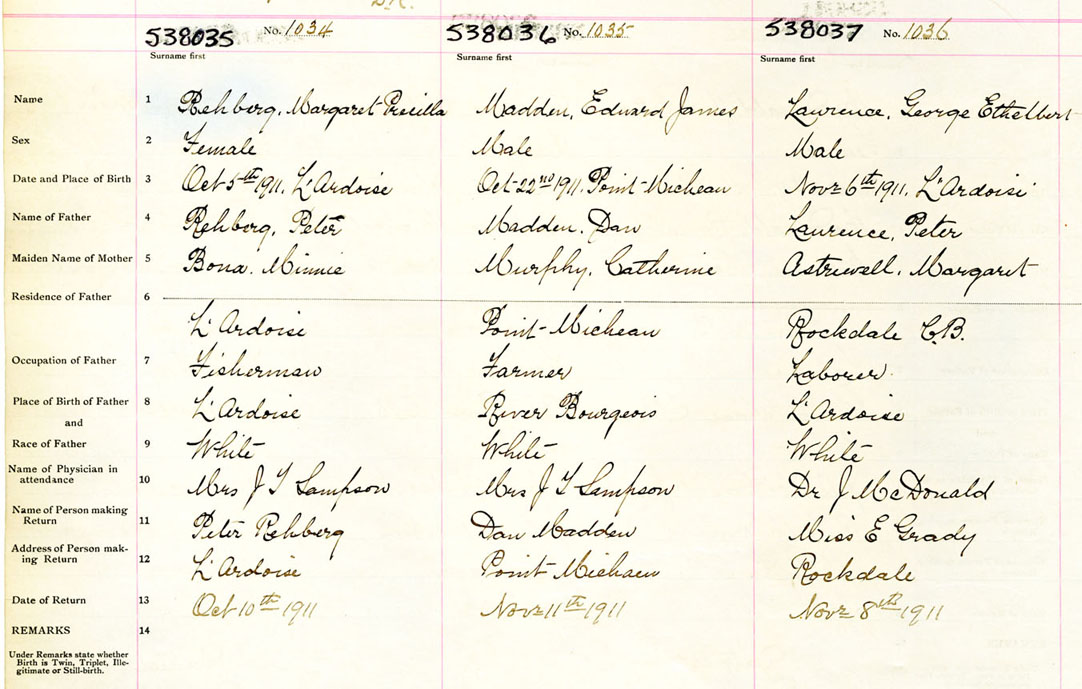 538035 No. 1034 538036 No. 1035 538037 No. 1036
Surname first Surname first Surname first
Name 1 Rehberg, Margaret Pricilla Madden, Edward James Lawrence, George Ethelbert
Sex 2 Female Male Male
Date and Place of Birth 3 Oct 5th 1911. L'Ardoise Oct 22nd 1911. Point Micheau Novr 6th 1911, L'Ardoise
Name of Father 4 Rehberg, Peter Madden. Dan Laurence, Peter
Maiden Name of Mother 5 Bona. Minnie Murphy, Catherine Margaret
Residence of Father 6
L'Ardoise Point Micheau Rockdale C.B.
Occupation of Father 7 Fisherman Farmer Laborer
Place of Birth of Father 8 L'Ardoise River Bourgeois L'Ardoise
and
Race of Father 9 White White White
Name of Physician in
attendance 10 Mrs J T Sampson Mrs J T Sampson Dr J McDonald
Name of Person making
Return 11 Peter Rehberg Dan Madden Miss E Grady
Address of Person mak-
ing Return 12 L'Ardoise Point Rockdale
Date of Return 13 Oct 10th 1911 Novr 11th 1911 Novr 8th 1911
REMARKS 14
Under Remarks state whether
Birth is Twin, Triplet, Ille-
gitimate or Still-birth.